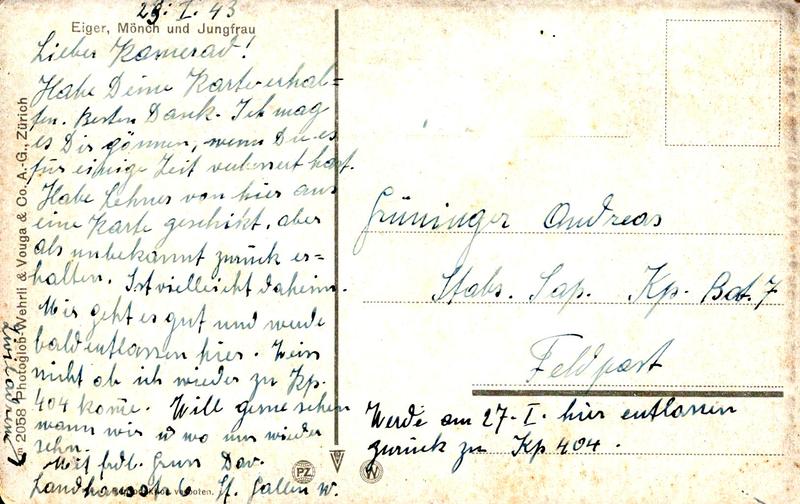 23. I. 43
Eiger, Mönch und Jungfrau
Lieber Kamerad!
Habe Deine Karte erhal=
ten. Besten Dank. Ich mag
es Dir gönnen, wenn Du es
für einige Zeit verbessert hast.
Habe Lehner von hier aus
eine Karte geschikt, aber
als unbekannt zurück er=
halten. Ist vielleicht daheim.
Mir geht es gut und werde
bald entlassen hier. Weis
nicht ob ich wieder zu Kp.
404 kome. Will gerne sehen
wann wir u wo uns wieder
sehn.
Mit frdl. Gruss Dav.
Landhausstr 6 St. Gallen W.
2058 Photoglob-Wehrli & Vouga & Co. A.-G., Zürich
Grüninger Andreas
Stabs. Sap. Kp. Bat. 7
Feldpost
Werde am 27. I. hier entlassen
zurück zu Kp 404.
PZ
W
verboten.